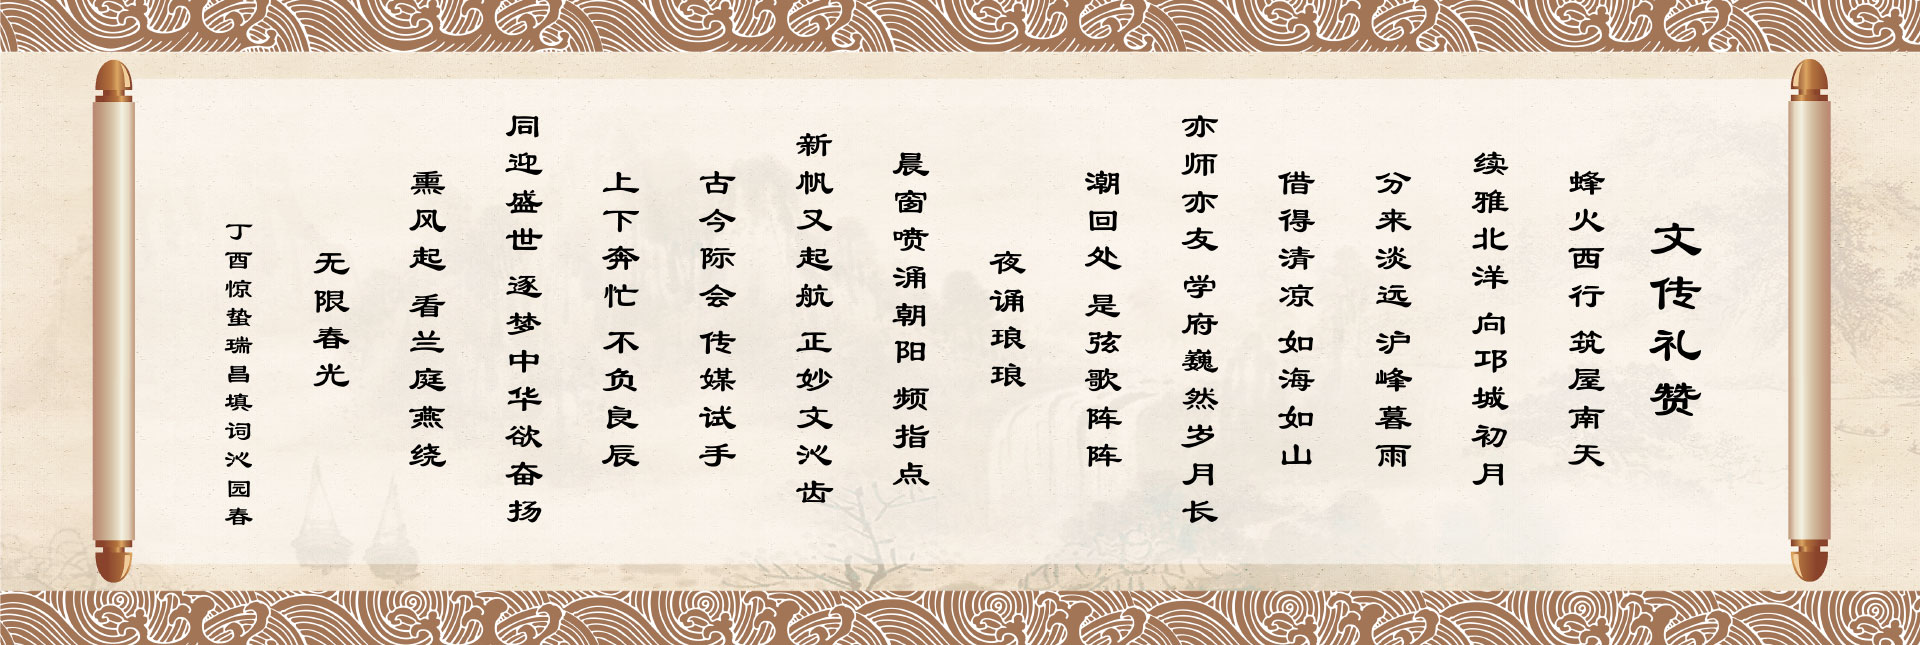 文传礼赞
蜂火西行 筑屋南天
续雅北洋 向邛城初月
分来淡远 沪峰暮雨
借得清凉 如海如山
亦师亦友 学府巍然岁月长
潮回处 是弦歌阵阵
夜诵琅琅
晨窗喷涌朝阳 频指点
新帆又起航 正妙文沁齿
古今际会 传媒试手
上下奔忙 不负良辰
同迎盛世 逐梦中华欲奋扬
熏风起 看兰庭燕绕
无限春光
丁酉惊蛰瑞昌填词沁园春